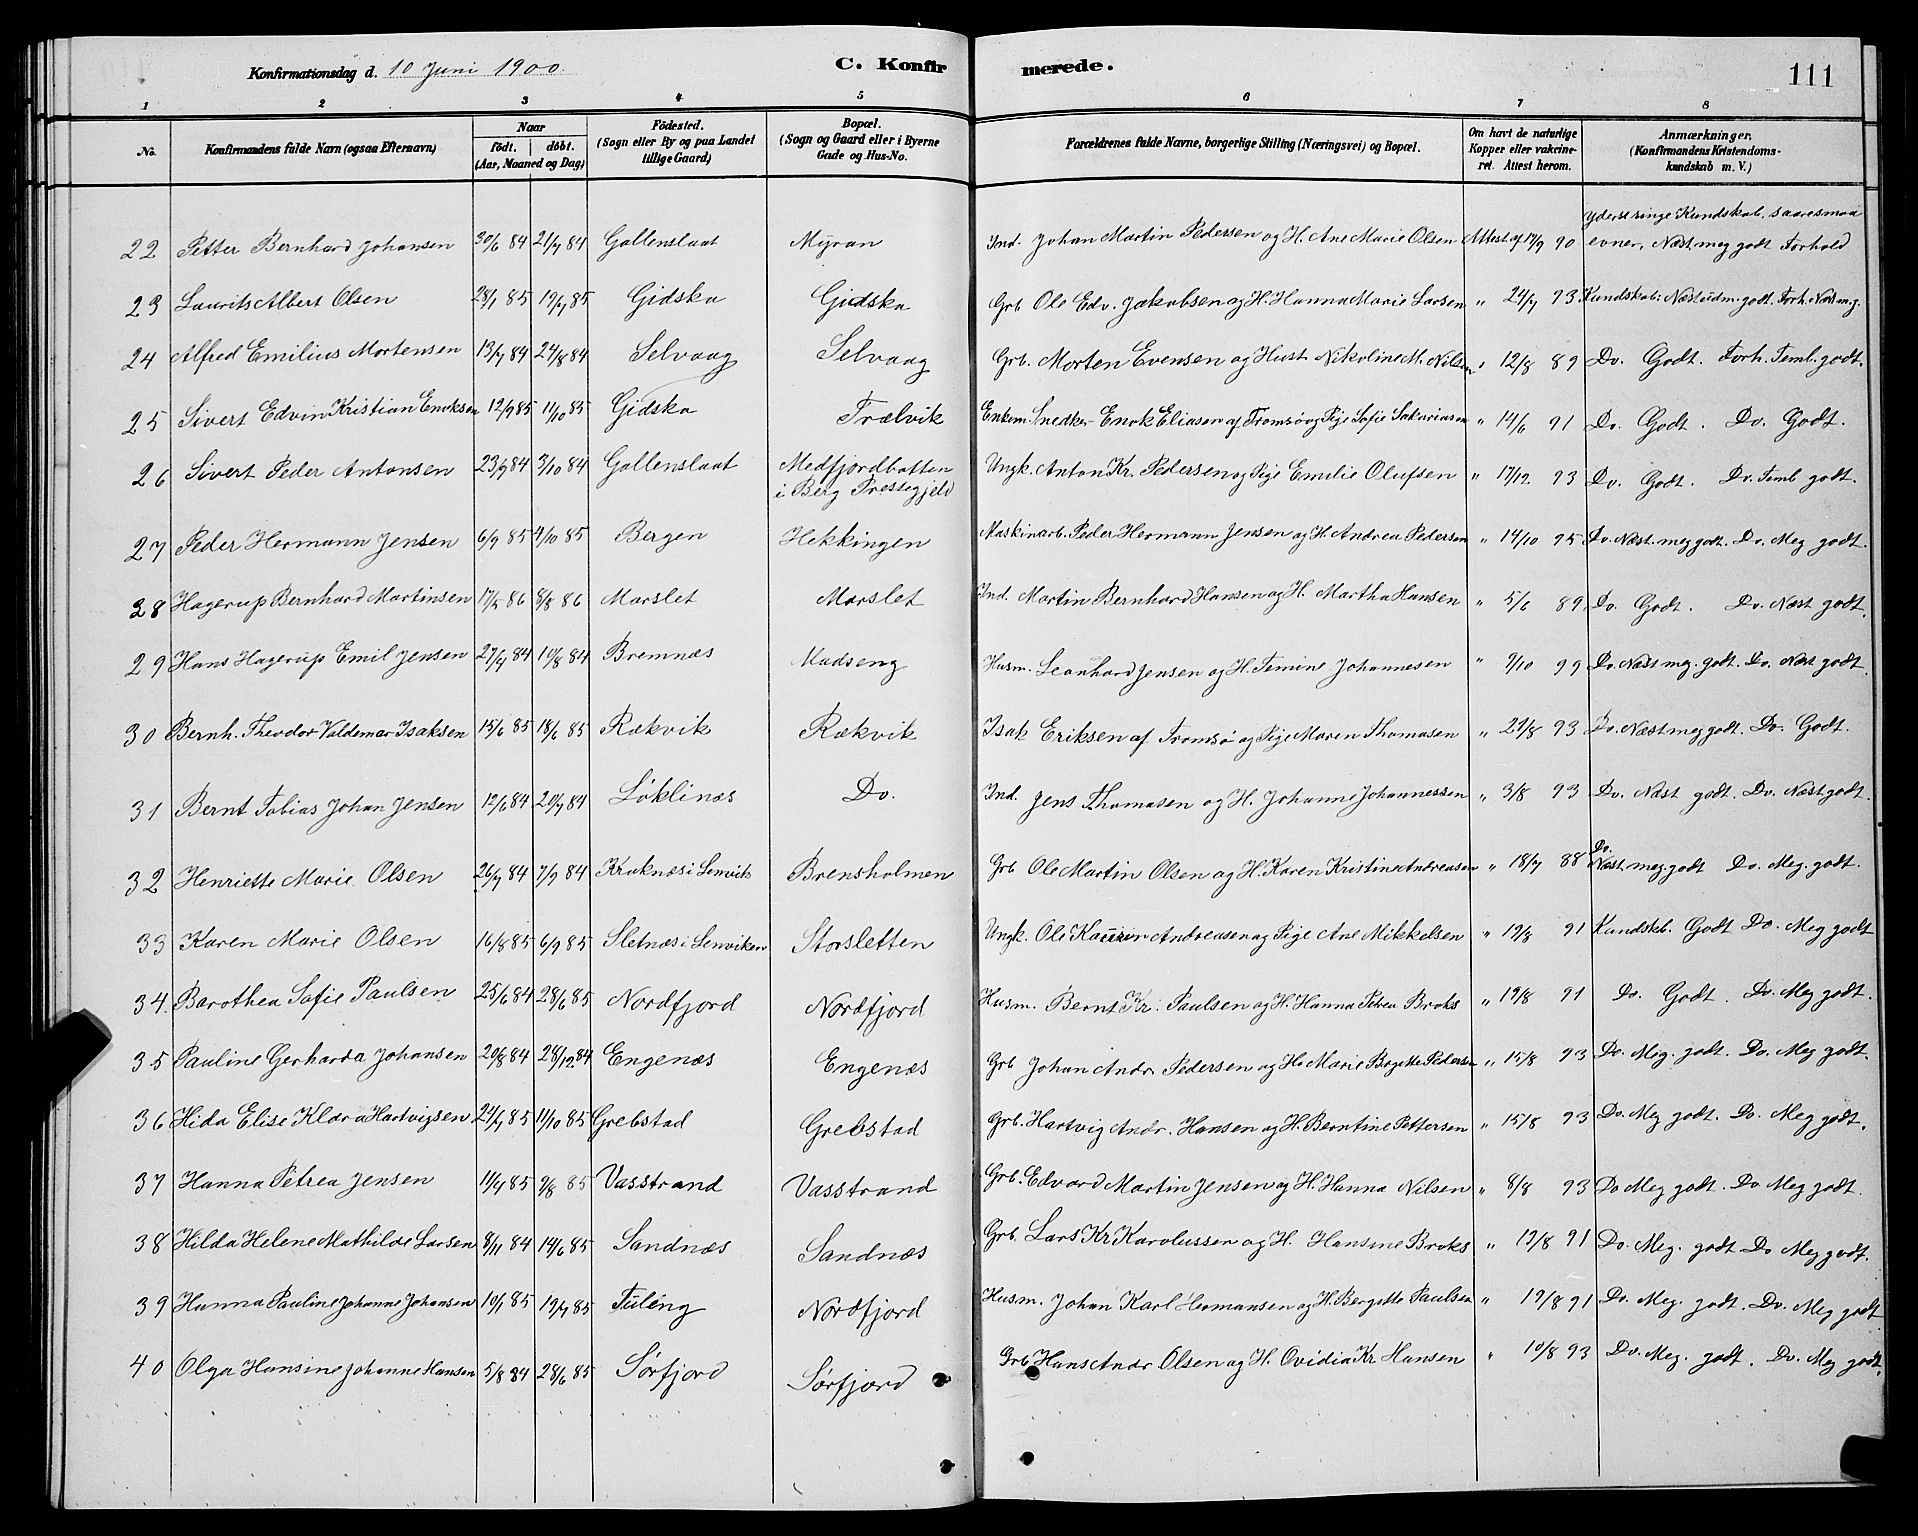 Konfirmationsdag d. 10 Juni 1900. C. Konfirmerede. 111
1 2 3 4 5 6 7 8
No. Konfirmandens fulde Navn (ogsaa Efternavn) Naar födt. döbt. (Aar, Maaned og Dag) Födested. (Sogn eller By og paa Landet tillige Gaard) Bopæl. (Sogn og Gaard eller i Byerne Gade og Hus-No. Forældrenes fulde Navne, borgerlige Stilling (Næringsvei) og Bopæl. Om havt de naturlige Kopper eller vakcineret. Attest herom. Anmærkninger. (Konfirmandens Kristendomskundskab m. V.)
22 Petter Bernhard Johansen 30/6 84 21/9 84 Gallenslaat Myran Ind. Johan Martin Pedersen og H. Ane Marie Olsen Attest af 17/9 90 Yderst ringe Kundskab, saaresmaa evner, Næst meg godt Forhold
23 Laurits Albert Olsen 28/1 85 19/4 85 Gidska Gidska Grb. Ole Edv. Jakobsen og H. Hanna Marie Larsen " 24/7 93 Kundskab: Næst udm. godt. Forh. Næst m. g.
24 Alfred Emilius Mortensen 13/7 84 24/8 84 Selvaag Selvaag Grb. Morten Evensen og Hust Nikoline M. Nilsen " 12/8 89 Do. Godt. Forh. Teml. godt.
25 Sivert Edvin Kristian Enoksen 12/9 85 11/10 85 Gidska Trælvik Enkem. Snedker Enok Eliasen af Tromsø og Pige Sofie Sakariasen " 14/6 91 Do. Godt. Do. Godt.
26 Sivert Peder Antonsen 23/9 84 3/10 84 Gallenslaat Medfjordbotten i Berg Præstegjeld Ungk. Anton Kr. Pedersen og Pige Emilie Olufsen " 17/12 93 Do. Godt. Do. Teml godt.
27 Peder Hermann Jensen 6/9 85 4/10 85 Bergen Hekkingen Maskinarb. Peder Hermann Jensen og H. Andrea Pedersen " 14/10 95 Do. Næst. meg godt. Do. Meg godt.
28 Hagerup Bernhard Martinsen 17/5 86 8/8 86 Marslet Marslet Ind. Martin Bernhard Hansen og H. Martha Hansen " 5/6 89 Do. Godt. Do. Næst godt.
29 Hans Hagerup Emil Jensen 27/4 84 10/8 84 Bremnæs Madseng Husm. Leonhard Jensen og H. Temine Johannesen " 9/10 99 Do. Næst meg. godt. Do. Næst godt.
30 Bernh. Theodor Valdemar Isaksen 15/6 85 18/6 85 Rækvik Rækvik Isak Eriksen af Tromsø og Pige Maren Thomasen " 29/8 93 Do. Næst meg godt. Do. Godt.
31 Bernt Tobias Johan Jensen 12/6 84 20/7 84 Løklinæs Do. Ind. Jens Thomasen og H. Johanne Johannessen " 3/8 93 Do. Næst godt. Do. Næst godt.
32 Henriette Marie Olsen 26/7 84 7/9 84 Kraknæs i Lenvik Brensholmen Grb Ole Martin Olsen og H. Karen Kristine Andreasen " 18/7 88 Do. Næst meg godt Do. Meg. godt.
33 Karen Marie Olsen 16/8 85 6/9 85 Sletnæs i Lenviken Storsletten Ungk. Ole Andreasen og Pige Ane Mikkelsen " 19/8 91 Kundskb. Godt Do. Meg godt
34. Barothea Sofie Paulsen 25/6 84 28/6 85 Nordfjord Nordfjord Husm. Bernt Kr. Paulsen og H. Hanna Petrea Broks " 19/8 91 Do. Godt. Do. Meg godt.
35 Pauline Gerharda Johansen 20/8 84 28/12 84 Engenæs Engenæs Grb Johan Andr Pedersen og H. Marie Birgitte Pedersen " 15/8 93 Do. Meg. godt. Do. Meg godt.
36 Hida Elise Klara Hartvigsen 24/7 85 11/10 85 Grebstad Grebstad Grb. Hartvig Andr. Hansen og H. Berntine Pettersen " 15/8 93 Do. Meg godt. Do. Meg godt.
37 Hanna Petrea Jensen 11/4 85 9/8 85 Vasstrand Vasstrand Grb. Edvard Martin Jensen og H. Hanna Nilsen " 8/8 93 Do Meg godt. Do. Meg godt.
38 Hilda Helene Mathilde Larsen 8/11 84 14/6 85 Sandnæs Sandnæs Grb. Lars Kr Karolussen og H. Hansine Broks " 19/8 91 Do. Meg. godt Do Meg godt.
39 Hanna Pauline Johanne Johansen 10/1 85 19/4 85 Tuleng Nordfjord Husm. Johan Karl Hermansen og H. Bergitte Paulsen " 19/8 91 Do. Meg. godt. Do. Meg godt
40 Olga Hansine Johanne Hansen 5/8 84 28/6 85 Sørfjord Sørfjord Grb Hans Andr Olsen og H. Ovidia Kr Hansen " 10/8 93 Do. Meg. godt. Do. Meg godt.